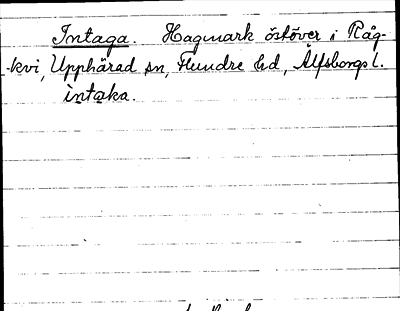 Intaga. Hagmark östöver i Råg-
-kvi, Upphärad sn, Flundre hd, Älfsborgs l.
intaka.